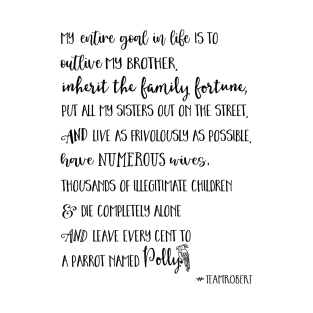 MY entire goal in life IS TO
outlive MY BROTHER,
inherit the family fortune,
PUT ALL MY SISTERS OUT ON THE STREET,
AND LIVE AS FRIVOLOUSLY AS POSSIBLE,
have NUMEROUS wives,
THOUSANDS OF ILLEGITIMATE CHILDREN
& DIE COMPLETELY ALONE
AND LEAVE EVERY CENT TO
A PARROT NAMED Polly
#TEAMROBERT